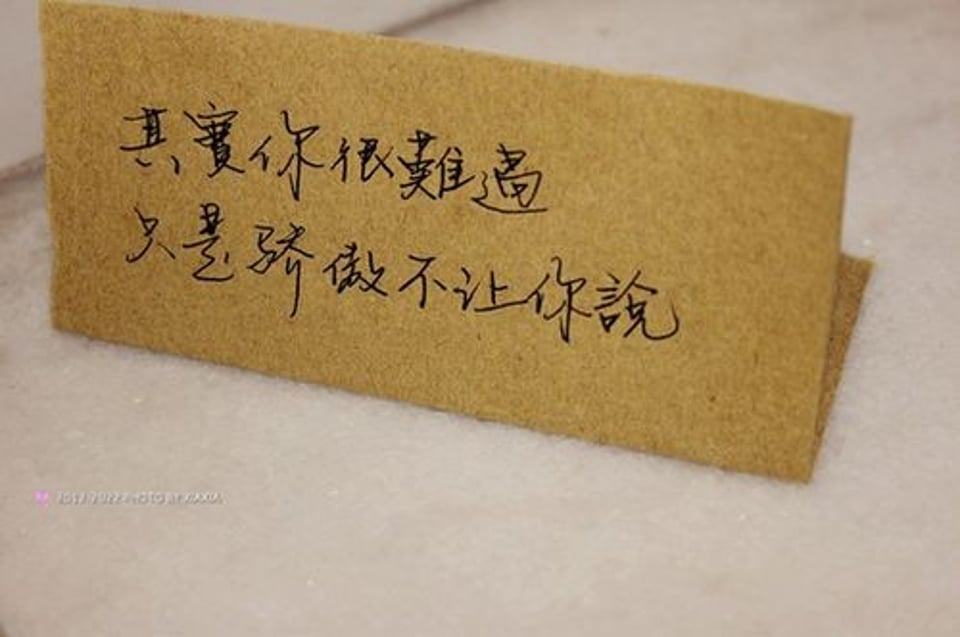 其實你很難過
只是骄傲不让你說
2012-2022 PHOTO BY XIAXIA